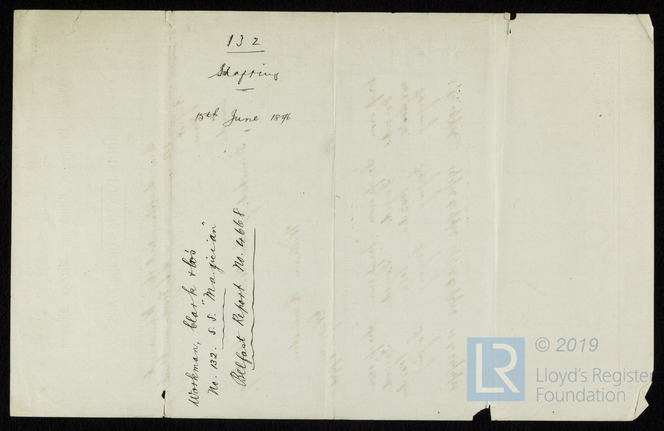 132
Shafting
15th June 1896
Workman, Clark & Co's
No. 132. S.S. "Magician"
Belfast Report No. 4668
LR
© 2019
Lloyd's Register
Foundation